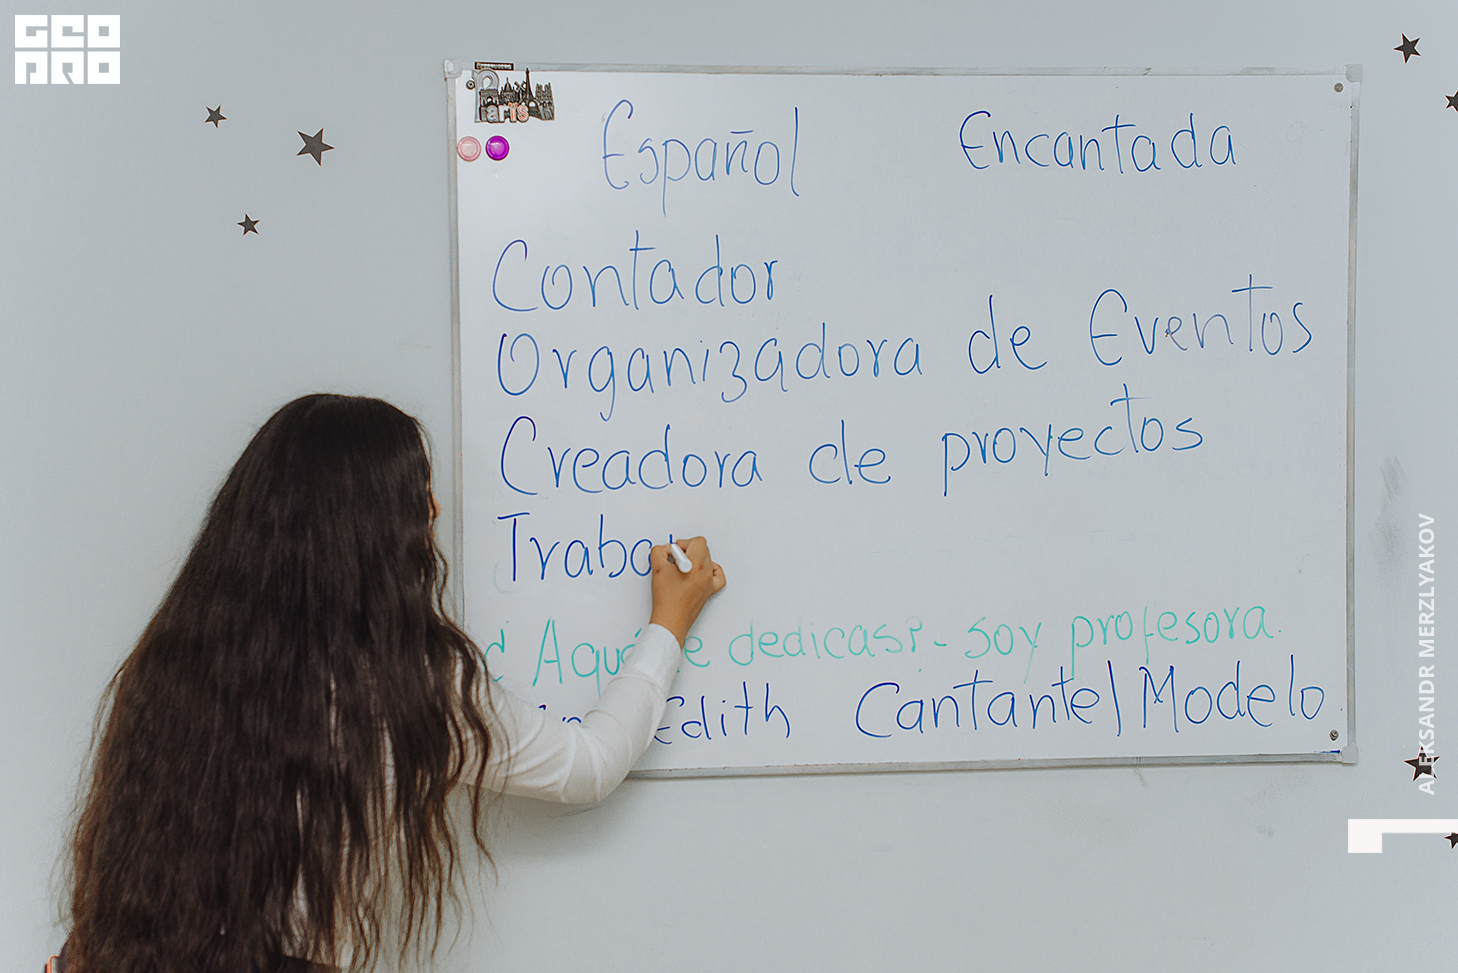 GEO
PRO
Paris
Español Encantada
Contador
Organizadora de Eventos
Creadora de proyectos
Traba
d Aqué te dedicas? - soy profesora.
Edith Cantante/Modelo
ALEKSANDR MERZLYAKOV